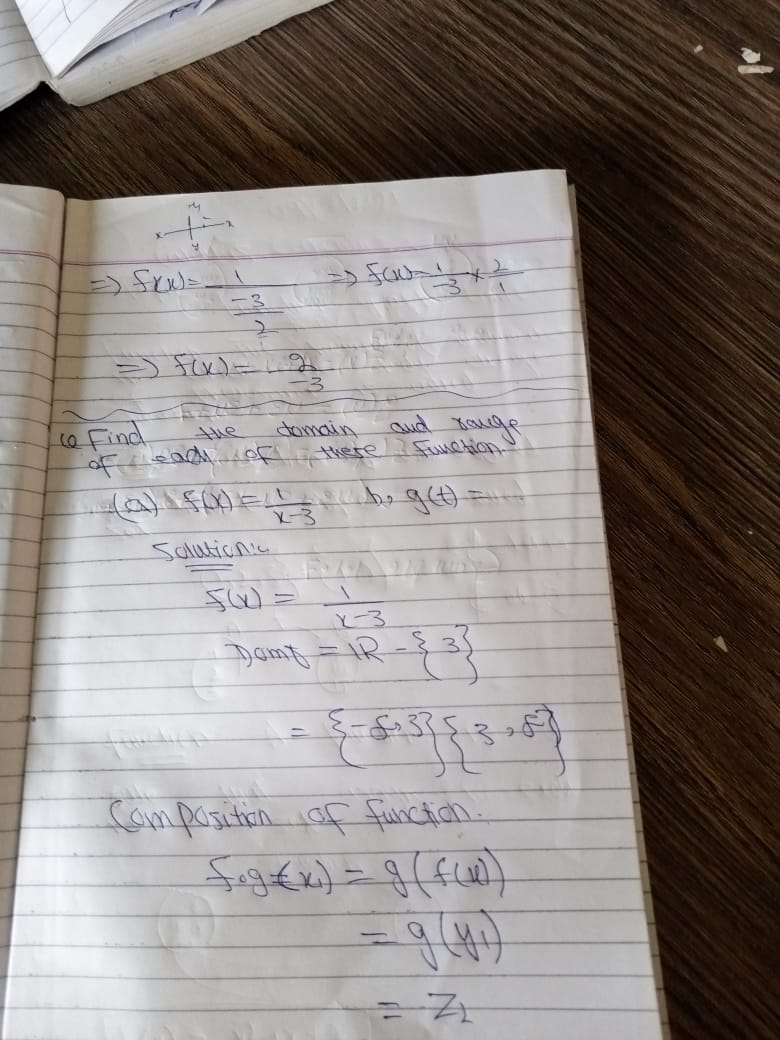 y
x x
y
=> f(x) = 1/(-3/2) => f(x) = 1/-3 × 2/1
=> f(x) = 2/-3
Q Find the domain and range
of each of these function.
(a) f(x) = 1/x-3 b, g(t) =
Solution:
f(x) = 1/x-3
Domf = IR - { 3 }
= { 3 } { 3 , }
Composition of function.
f.g (x1) = g(f(x))
= g(y1)